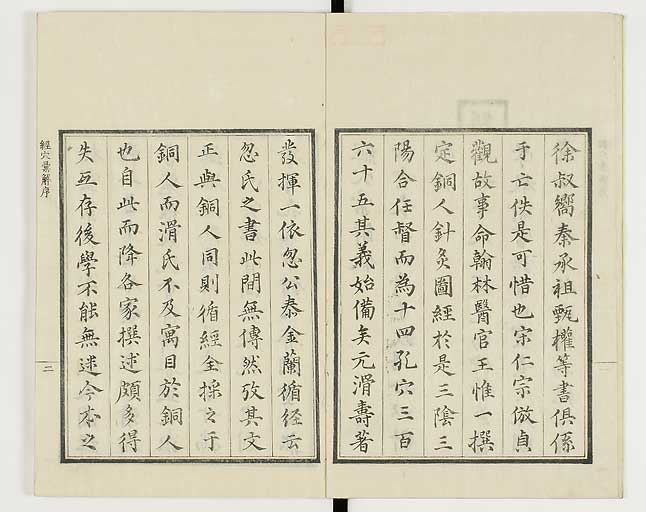 徐叔嚮秦承祖甄權等書俱係
于亡佚是可惜也宋仁宗倣貞
觀故事命翰林醫官王惟一撰
定銅人針灸圖經於是三陰三
陽合任督而為十四孔穴三百
六十五其義始備矣元滑壽著
發揮一依忽公泰金蘭循経云
忽氏之書此間無傳然攷其文
正與銅人同則循經全採之于
銅人而滑氏不及寓目於銅人
也自此而降各家撰述頗多得
失互存後學不能無迷今本之
經穴彙解序
二